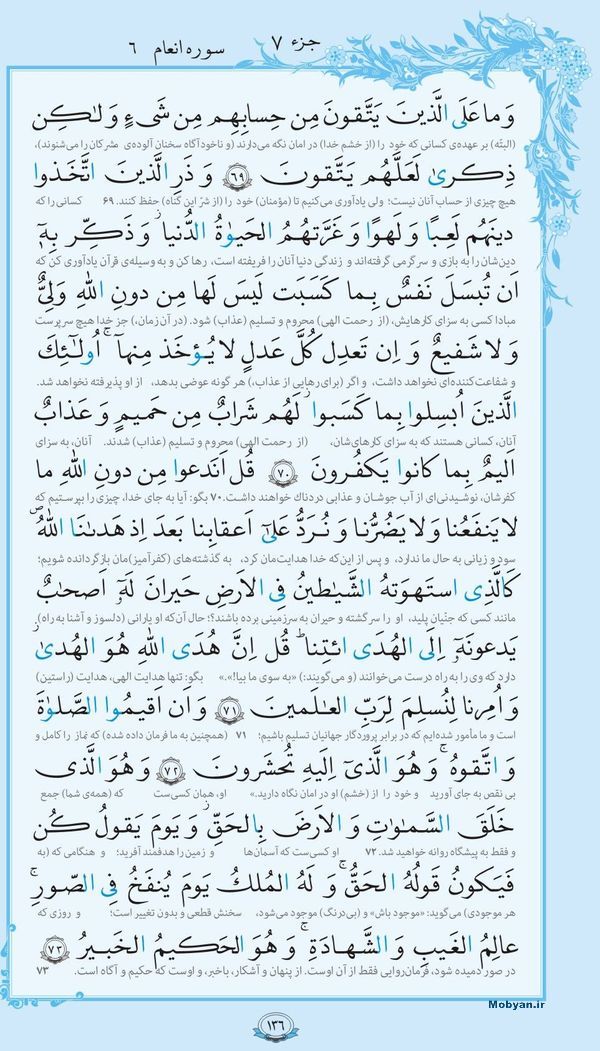 جزء ۷ سوره انعام ۶
وَ ما عَلَى الَّذينَ يَتَّقونَ مِن حِسابِهِم مِن شَىءٍ وَ لٰكِن
(البتّه) بر عهده‌ی کسانی که خود را (از خشم خدا) در امان نگه می‌دارند (و ناخودآگاه سخنان آلوده‌ی مشرکان را می‌شنوند)،
ذِكرىٰ لَعَلَّهُم يَتَّقونَ ﴿۶۹﴾ وَ ذَرِ الَّذينَ اتَّخَذوا
هیچ چیزی از حساب آنان نیست؛ ولی یادآوری می‌کنیم تا (مؤمنان) خود را (از شرّ این گناه) حفظ کنند. ۶۹ کسانی را که
دينَهُم لَعِبًا وَ لَهوًا وَ غَرَّتهُمُ الحَيوٰةُ الدُّنيا ۚ وَ ذَكِّر بِهٓ
دین‌شان را به بازی و سرگرمی گرفته‌اند و زندگی دنیا آنان را فریفته است، رها کن و به وسیله‌ی قرآن یادآوری کن که
اَن تُبسَلَ نَفسٌ بِما كَسَبَت لَيسَ لَها مِن دونِ اللّٰهِ وَلِىٌّ
مبادا کسی به سزای کارهایش، (از رحمت الهی) محروم و تسلیم (عذاب) شود. (در آن زمان،) جز خدا هیچ سرپرست
وَ لا شَفيعٌ وَ اِن تَعدِل كُلَّ عَدلٍ لا يُؤخَذ مِنهآ ۗ اُولٰٓئِكَ
و شفاعت‌کننده‌ای نخواهد داشت، و اگر (برای رهایی از عذاب،) هر گونه عوضی بدهد، از او پذیرفته نخواهد شد.
الَّذينَ اُبسِلوا بِما كَسَبوا ۖ لَهُم شَرابٌ مِن حَميمٍ وَ عَذابٌ
آنان، کسانی هستند که به سزای کارهای‌شان، (از رحمت الهی) محروم و تسلیم (عذاب) شدند. آنان، به سزای
اَليمٌ بِما كانوا يَكفُرونَ ﴿۷۰﴾ قُل اَنَدعوا مِن دونِ اللّٰهِ ما
کفرشان، نوشیدنی‌ای از آب جوشان و عذابی دردناک خواهند داشت. ۷۰ بگو: آیا به جای خدا، چیزی را بپرستیم که
لا يَنفَعُنا وَ لا يَضُرُّنا وَ نُرَدُّ عَلىٰٓ اَعقابِنا بَعدَ اِذ هَدىٰنَا اللّٰهُ
سود و زیانی به حال ما ندارد، و پس از این‌که خدا هدایت‌مان کرد، به گذشته‌های (کفرآمیز)مان بازگردانده شویم؛
كَالَّذِى استَهوَتهُ الشَّياطينُ فِى الاَرضِ حَيرانَ لَهٓ اَصحابٌ
مانند کسی که جنّیان پلید، او را سرگشته و حیران به سرزمینی برده باشند؟؛ حال آن‌که او یارانی (دلسوز و آشنا به راه)
يَدعونَهٓ اِلَى الهُدَى ائتِنا ۗ قُل اِنَّ هُدَى اللّٰهِ هُوَ الهُدىٰ
دارد که وی را به راه درست می‌خوانند (و می‌گویند:) «به سوی ما بیا!».» بگو: تنها هدایت الهی، هدایت (راستین)
وَ اُمِرنا لِنُسلِمَ لِرَبِّ العالَمينَ ﴿۷۱﴾ وَ اَن اَقيمُوا الصَّلوٰةَ
است و ما مأمور شده‌ایم که در برابر پروردگار جهانیان تسلیم باشیم؛ ۷۱ (همچنین به ما فرمان داده شده) که نماز را کامل و
وَ اتَّقوهُ ۚ وَ هُوَ الَّذىٓ اِلَيهِ تُحشَرونَ ﴿۷۲﴾ وَ هُوَ الَّذى
بی نقص به جای آورید و خود را از (خشم) او در امان نگاه دارید.» او، همان کسی‌ست که (همه‌ی شما) جمع
خَلَقَ السَّماواتِ وَ الاَرضَ بِالحَقِّ ۖ وَ يَومَ يَقولُ كُن
و فقط به پیشگاه روانه خواهید شد. ۷۲ او کسی‌ست که آسمان‌ها و زمین را هدفمند آفرید؛ و هنگامی که (به
فَيَكونُ قَولُهُ الحَقُّ ۚ وَ لَهُ المُلكُ يَومَ يُنفَخُ فِى الصّورِ ۚ
هر موجودی) می‌گوید: «موجود باش» و (بی‌درنگ) موجود می‌شود، سخنش قطعی و بدون تغییر است؛ و روزی که
عالِمُ الغَيبِ وَ الشَّهادَةِ ۚ وَ هُوَ الحَكيمُ الخَبيرُ ﴿۷۳﴾
در صور دمیده شود، فرمان‌روایی فقط از آن اوست. از پنهان و آشکار، باخبر، و اوست که حکیم و آگاه است. ۷۳
Mobyan.ir
۱۳۶